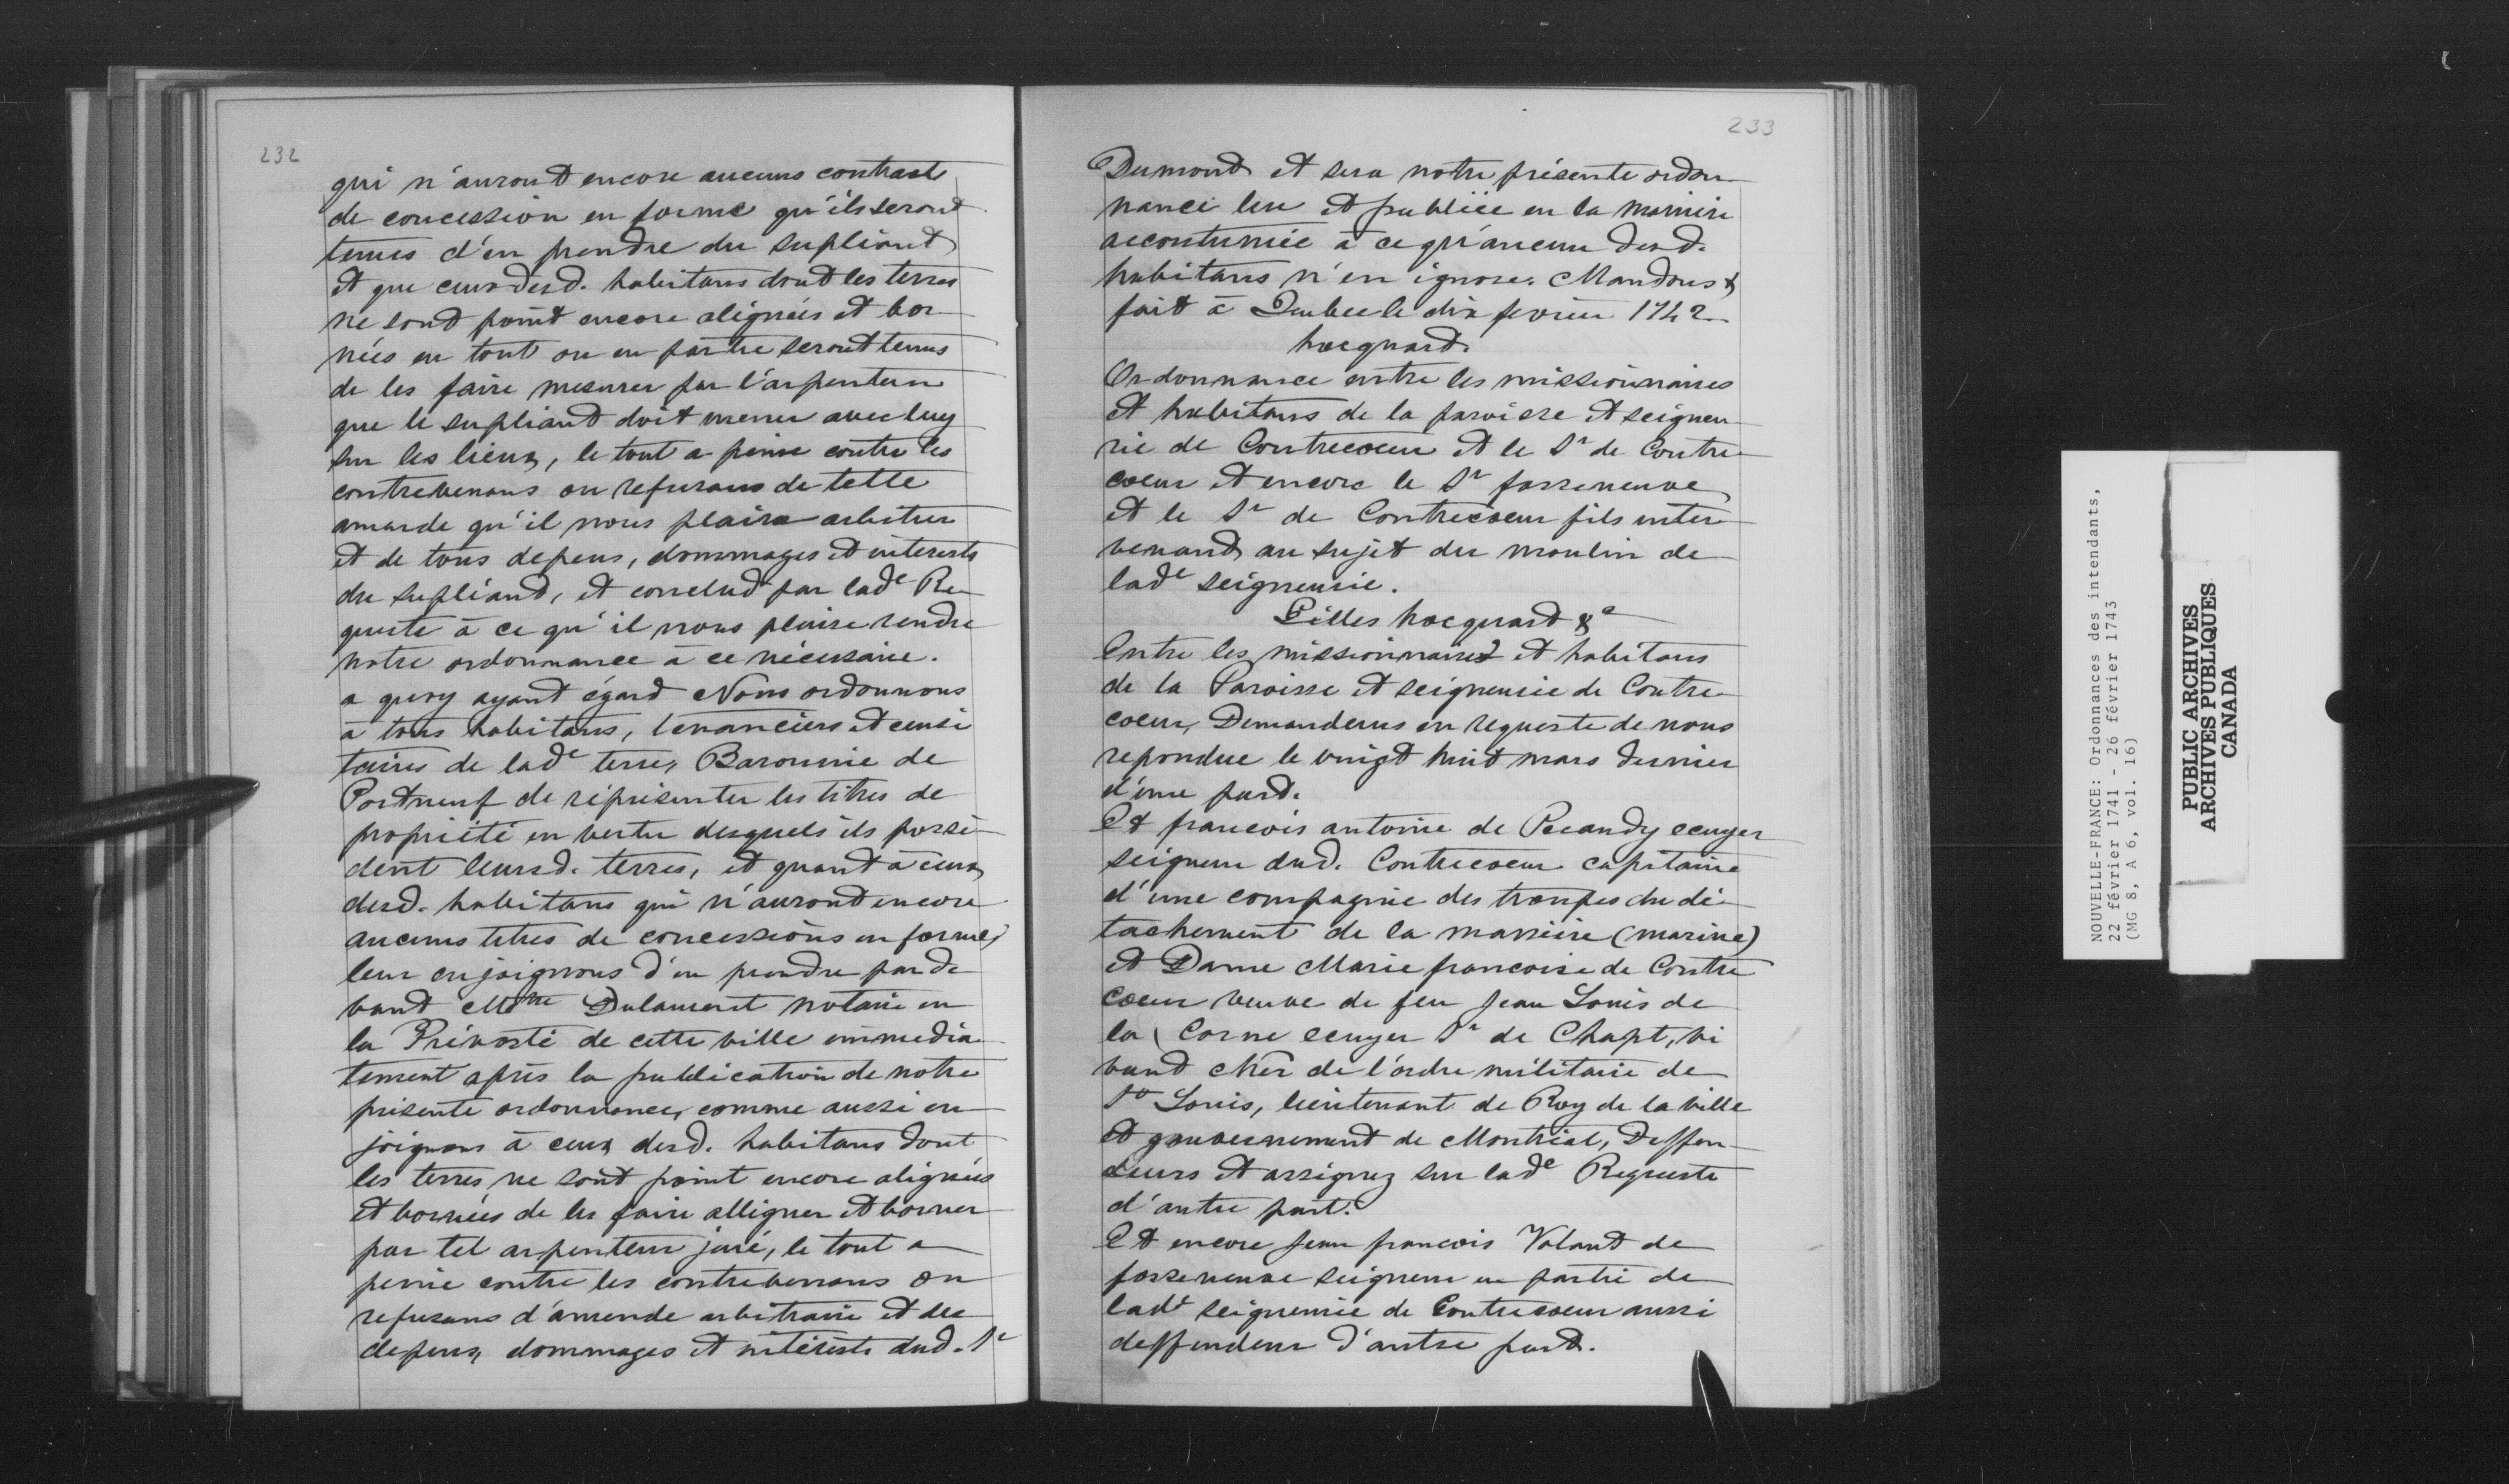 232
qui n'auront encore aucuns contracts
de concession en forme qu'ils seront
tenus d'en prendre du supliant
et que ceux desd. habitans dont les terres
ne sont point encore alignées et bor
nées en tout ou en partie seront tenus
de les faire mesurer par l'arpenteur
que le supliant doit mener avec luy
sur les lieux, le tout a peine contre les
contrevenans ou refusans de telle
amande qu'il nous plaira arbitrer
et de tous depens, dommages et interests
du supliant, et conclud par lade Re
queste à ce qu'il nous plaise rendre
notre ordonnance à ce nécessaire.
a quoy ayant égard Nous ordonnons
à tous habitans, tenanciers et censi
taires de lade terre, Baronnie de
Portneuf de réprésenter les titres de
propriété en vertu desquels ils possè
dent leursd. terres, et quant à ceux
desd. habitans qui n'auront encore
aucuns titres de concessions en forme,
leur enjoignons d'en prendre parde
vant Mtre Dulaurent notaire en
la Prévosté de cette ville immedia
tement après la publication de notre
présente ordonnance, comme aussi en
joignons à ceux desd. habitans dont
les terres ne sont point encore alignées
et bornées de les faire alligner et borner
par tel arpenteur juré, le tout a
peine contre les contrevenans ou
refusans d'amende arbitraire et des
depens, dommages et intérests dud. Sr
233
Dumont et sera notre présente ordon
nance lue et publiée en la manière
accoutumée à ce qu'aucun desd.
habitans n'en ignore. Mandons &
fait à Quebec le dix fevrier 1742
hocquart.
Ordonnance entre les missionnaires
et habitans de la paroisse et seigneu
rie de Contrecoeur et le Sr de Contre
coeur et encore le Sr fosseneuve
et le Sr de Contrecoeur fils inter
venant au sujet du moulin de
lade seigneurie.
Gilles hocquart &a
Entre les missionnaires et habitans
de la Paroisse et seigneurie de Contre
coeur, Demandeurs en requeste de nous
repondue le vingt huit mars dernier
d'une part.
Et francois antoine de Pecaudy ecuyer
seigneur dud. Contrecoeur capitaine
d'une compagnie des troupes du dé
tachement de la manière (marine)
et Dame Marie francoise de Contre
coeur veuve de feu Jean Louis de
la Corne ecuyer Sr de Chapt, vi
vant cher de l'ordre militaire de
St Louis, lieutenant de Roy de la ville
et gouvernement de Montréal, Deffen
deurs et assignez sur lade Requeste
d'autre part.
Et encore Jean francois Volant de
fosseneuve seigneur en partie de
lade seigneurie de Contrecoeur aussi
deffendeur d'autre part.
NOUVELLE-FRANCE: Ordonnances des intendants,
22 février 1741 - 26 février 1743
(MG 8, A 6, vol. 16)
PUBLIC ARCHIVES
ARCHIVES PUBLIQUES
CANADA